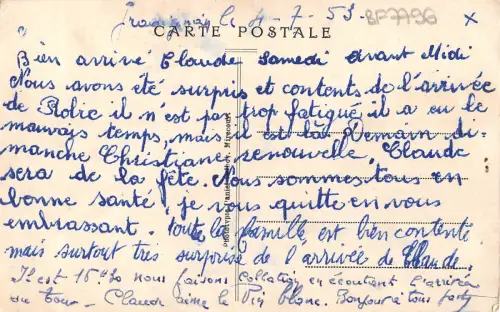 Gradignan le 4-7-53-
BP7796
CARTE POSTALE
Bien arrivé Claude samedi avant Midi
Nous avons été surpris et contents de l'arrivée
de Robic il n'est pas trop fatigué, il a eu le
mauvais temps, mais il est là Demain di-
manche Christiane renouvelle, Claude
sera de la fête. Nous sommes tous en
bonne santé, je vous quitte en vous
embrassant. Toute la famille est bien contente
mais surtout très surprise de l'arrivée de Claude.
Il est 16h40 nous faisons collation en écoutant l'arrivée
du tour - Claude aime le Vin blanc. Bonjour à tous